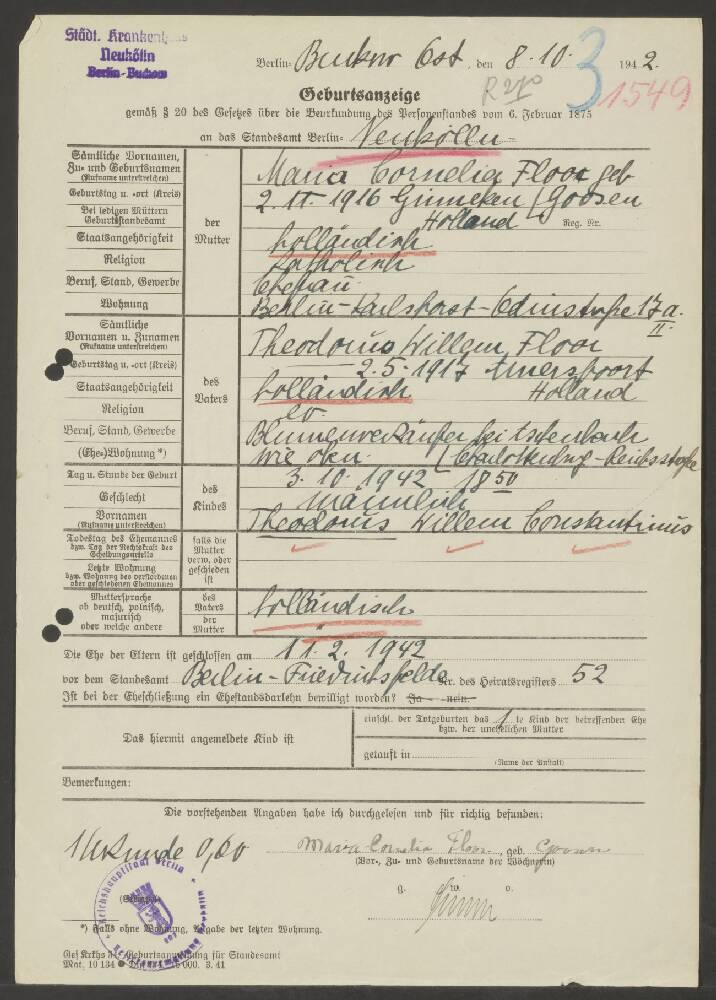 Städt. Krankenhaus
Neukölln
Berlin-Buckow
Berlin= Buckow Ost, den 8.10. 1942.
3
R 270
1549
Geburtsanzeige
gemäß § 20 des Gesetzes über die Beurkundung des Personenstandes vom 6. Februar 1875
an das Standesamt Berlin= Neukölln
Sämtliche Vornamen, Zu= und Geburtsnamen (Rufname unterstreichen)
Maria Cornelia Floor geb
Geburtstag u. =ort (Kreis)
2. 11. 1916 Ginneken / Goosen
Bei ledigen Müttern Geburtsstandesamt
Holland Reg. Nr.
der Mutter
Staatsangehörigkeit
holländisch
Religion
katholisch
Beruf, Stand, Gewerbe
Ehefrau
Wohnung
Berlin-Karlshorst- 17a. II
Sämtliche Vornamen u. Zunamen (Rufname unterstreichen)
Theodorus Willem Floor
Geburtstag u. =ort (Kreis)
2.5.1917 Amersfoort
Holland
Staatsangehörigkeit
holländisch
des Vaters
Religion
ev.
Beruf, Stand, Gewerbe
Blumenverkäufer bei
(Ehe=)Wohnung*)
wie oben. (Charlottenburg-Reichsstraße
Tag u. Stunde der Geburt
3. 10. 1942 18 50
Geschlecht
des Kindes
männlich
Vornamen (Rufname unterstreichen)
Theodorus Willem Constantinus
Todestag des Ehemannes bzw. Tag der Rechtskraft des Scheidungsurteils
falls die Mutter verw. oder geschieden ist
Letzte Wohnung bzw. Wohnung des verstorbenen oder geschiedenen Ehemannes
Muttersprache ob deutsch, polnisch, masurisch oder welche andere
des Vaters
der Mutter
holländisch
Die Ehe der Eltern ist geschlossen am 11. 2. 1942
vor dem Standesamt Berlin-Friedrichsfelde Nr. des Heiratsregisters 52
Ist bei der Eheschließung ein Ehestandsdarlehn bewilligt worden? Ja — nein.
Das hiermit angemeldete Kind ist
einschl. der Totgeburten das 1 te Kind der betreffenden Ehe
bzw. der unehelichen Mutter
getauft in
(Name der Anstalt)
Bemerkungen:
Die vorstehenden Angaben habe ich durchgelesen und für richtig befunden:
1 Urkunde 0,60
Maria Cornelia Floor, geb. Goosen
(Vor=, Zu= und Geburtsname der Wöchnerin)
g. w. o.
Reichshauptstadt Berlin
*) Falls ohne Wohnung, Angabe der letzten Wohnung.
Geburtsanmeldung für Standesamt
Mat. 10 134 000. 3. 41